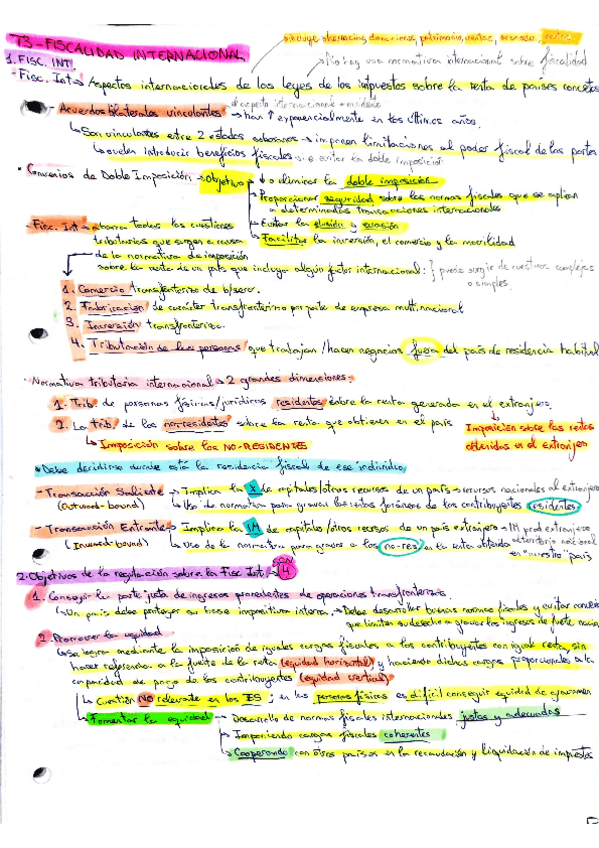 T3-FISCALIDAD INTERNACIONAL
1. FISC. INT.
No hay una normativa internacional sobre fiscalidad
- Fisc. Int → Aspectos internacionales de las leyes de los impuestos sobre la renta de países concretos
- Acuerdos bilaterales vinculantes → han ↑ exponencialmente en los últimos años.
↳ Son vinculantes entre 2 estados soberanos → imponen limitaciones al poder fiscal de las partes
↳ suelen introducir beneficios fiscales evitar la doble imposición
· Convenios de Doble Imposición → Objetivo ↓ o eliminar la doble imposición
Proporcionar seguridad sobre las normas fiscales que se aplican
a determinadas transacciones internacionales
Evitar la elusión y evasión
Facilitar la inversión, el comercio y la movilidad
- Fisc. Int → abarca todas las cuestiones
tributarias que surgen a causa
de la normativa de imposición
sobre la renta de un país que incluya algún factor internacional: } puede surgir de cuestiones complejas
o simples
1. Comercio transfronterizo de b/serv.
2. Fabricación de carácter transfronterizo por parte de empresa multinacional
3. Inversión transfronteriza.
4. Tributación de las personas que trabajan/hacen negocios fuera del país de residencia habitual
· Normativa tributaria internacional → 2 grandes dimensiones:
1. Trib. de personas físicas/jurídicas residentes sobre la renta generada en el extranjero
2. La trib. de los no residentes sobre la renta que obtienen en el país
Imposición sobre las rentas
obtenidas en el extranjero
↳ Imposición sobre los NO-RESIDENTES
* Debe decidirse donde está la residencia fiscal de ese individuo
- Transacción Saliente → Implica la X de capitales/otros recursos de un país → recursos nacionales al extranjero
(outward-bound) ↳ Uso de normativa para gravar las rentas foráneas de los contribuyentes residentes
- Transacción Entrante → Implica la IM de capitales/otros recursos de un país extranjero → IM prod extranjeros
al territorio nacional
(Inward-bound) ↳ Uso de la normativa para gravar a los no-res en la renta obtenida en "nuestro" país
2. Objetivos de la regulación sobre la Fisc Int. → SON 4
1. Conseguir la parte justa de ingresos procedentes de operaciones transfronterizas
↳ Un país debe proteger su base impositiva interna. → Debe desarrollar buenas normas fiscales y evitar
que limiten su derecho a gravar los ingresos de fuente
2. Promover la equidad
↳ Se logra mediante la imposición de iguales cargas fiscales a los contribuyentes con igual renta, sin
hacer referencia a la fuente de la renta (equidad horizontal) y haciendo dichas cargas proporcionales a la
capacidad de pago de los contribuyentes (equidad vertical)
↳ Cuestión NO relevante en los IS; en las personas físicas es difícil conseguir equidad de gravamen
↳ Fomentar la equidad → Desarrollo de normas fiscales internacionales justas y adecuadas
↳ Imponiendo cargas fiscales coherentes
↳ Cooperando con otros países en la recaudación y liquidación de impuestos